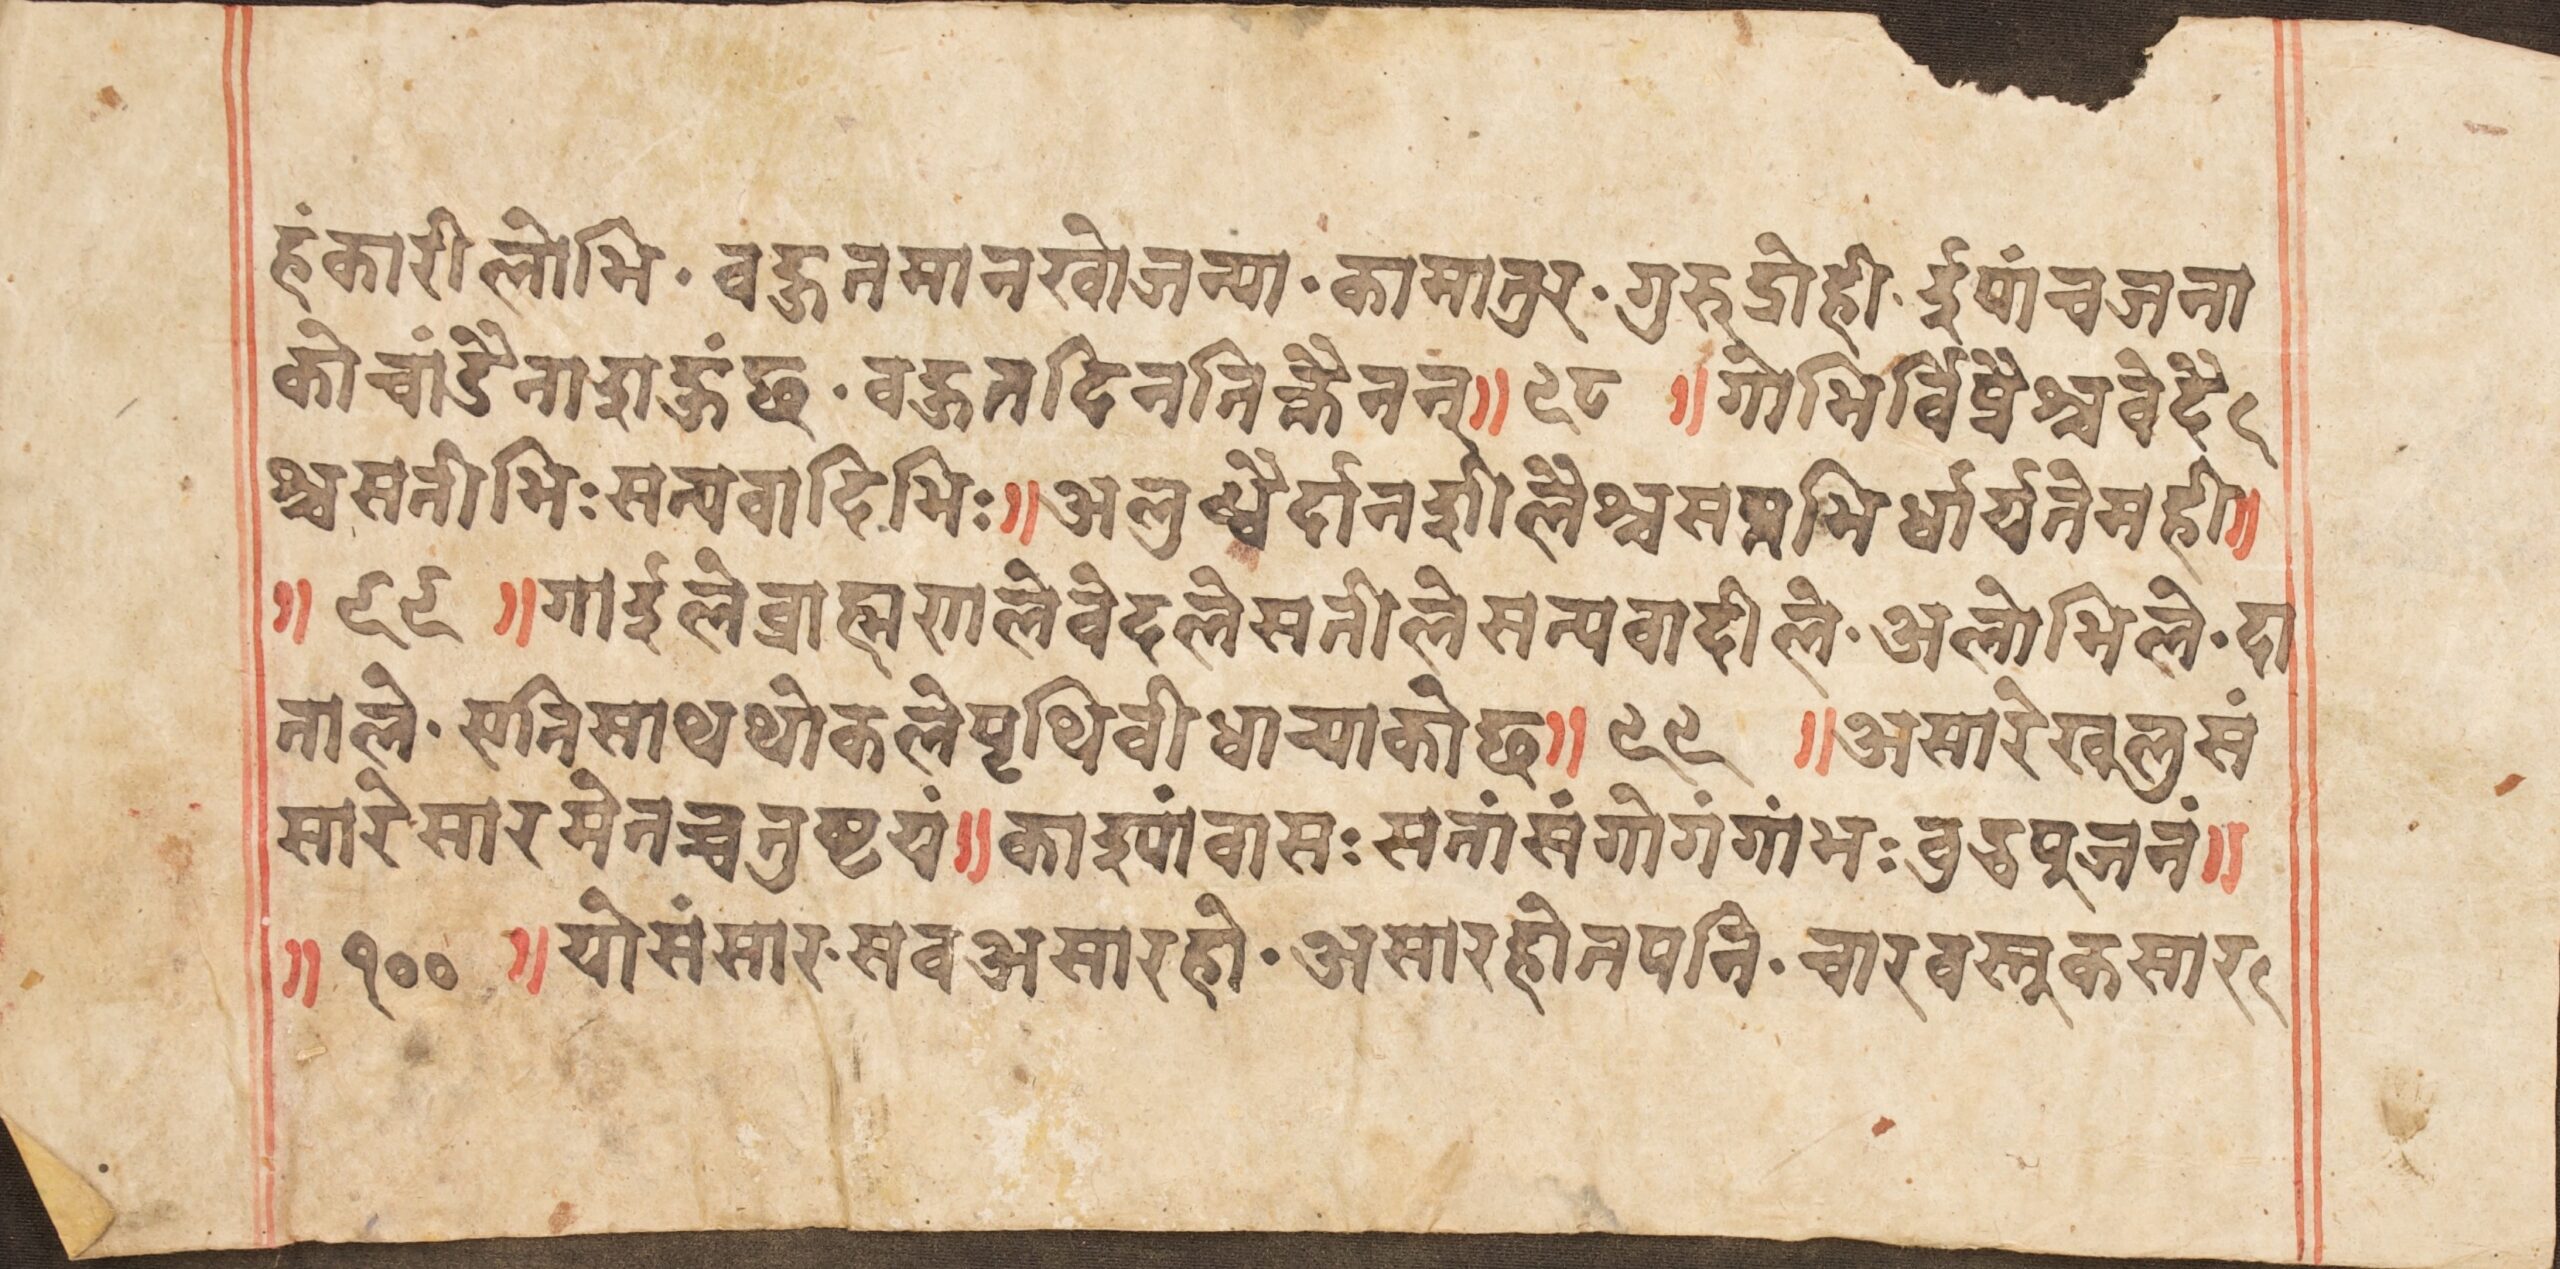 हंकारीलोभि· वहुतमानखोजन्या· कामातुर· गुरुद्रोही· ईपांचजना
कोचांडैनाशहुंछ· वहुतदिननिक्लैनन्॥ ९८ ॥गोभिर्विप्रैश्चवेदै
श्चसतीभिःसत्यवादिभिः॥अलुब्धैर्दानशीलैश्चसप्तभिर्धार्यतेमही॥
॥ ९९ ॥गाईलेब्राह्मणलेवेदलेसतीलेसत्यवादीले· अलोभिले· दा
ताले· एतिसाथथोकलेपृथिवीधान्याकोछ॥ ९९ ॥असारेखलुसं
सारेसारमेतच्चतुष्टयं॥काश्यांवासःसतांसंगोगंगांभःवुढपूजनं॥
॥ १०० ॥योसंसार· सवअसारहो· असारहोतपनि· चारवस्तुकसार